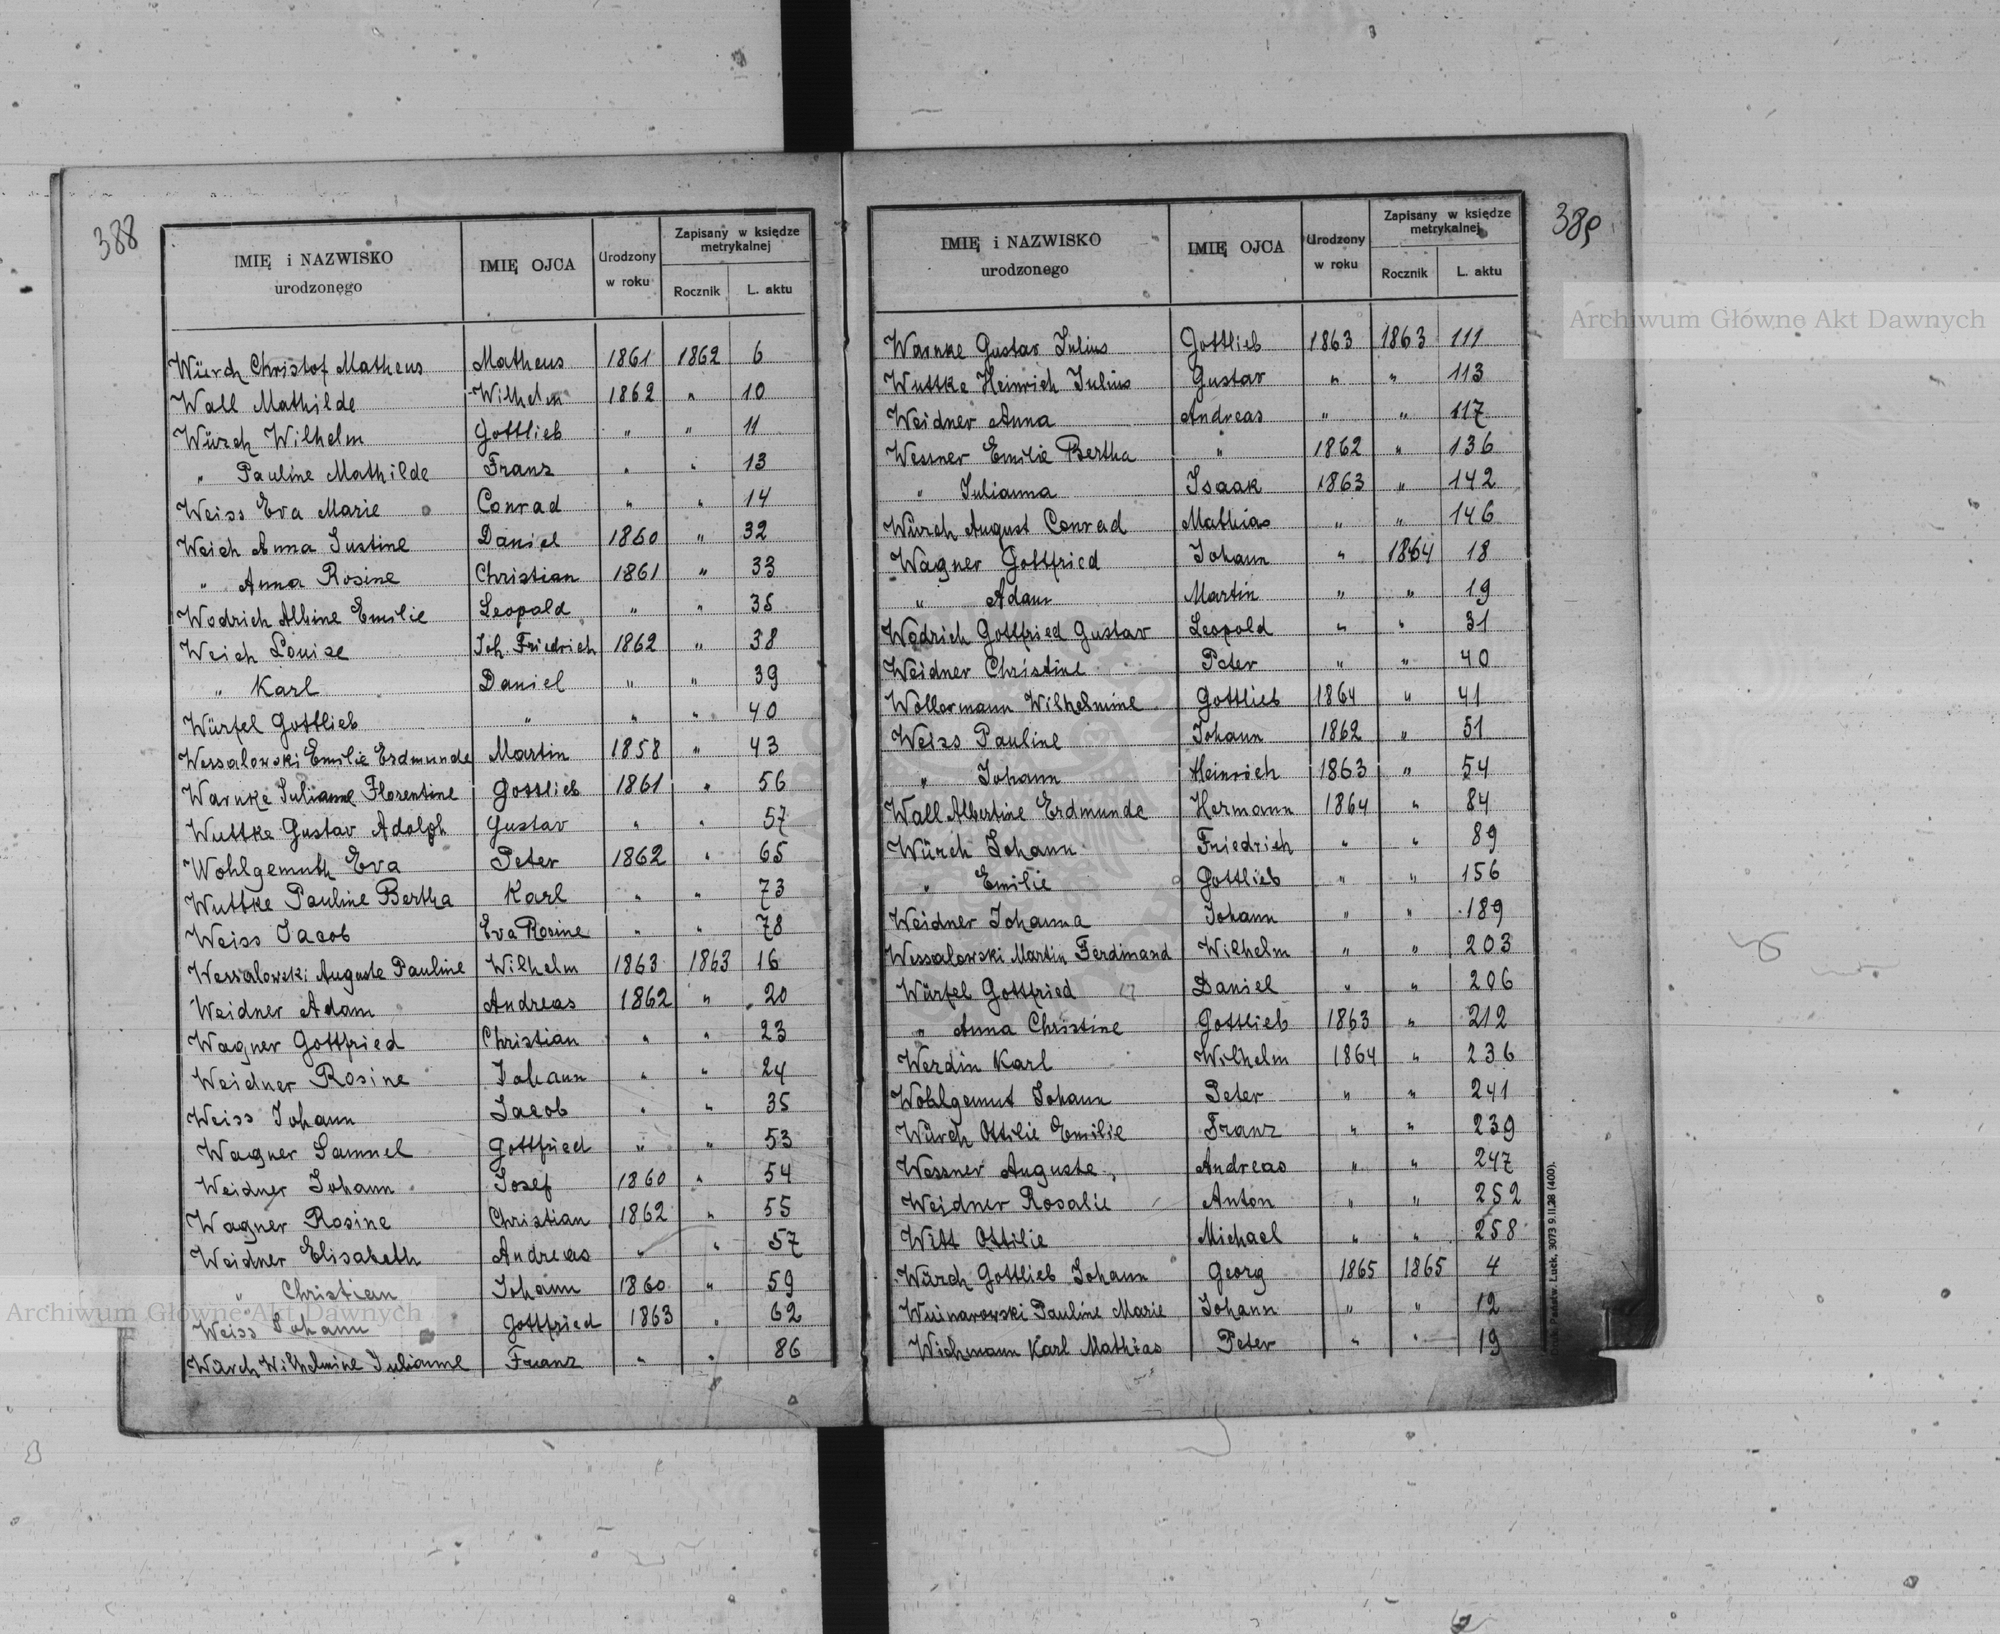 388
IMIĘ i NAZWISKO urodzonego | IMIĘ OJCA | Urodzony w roku | Zapisany w księdze metrykalnej | Rocznik | L. aktu
Würch Christof Matheus | Matheus | 1861 | 1862 | 6
Wall Mathilde | Wilhelm | 1862 | " | 10
Würch Wilhelm | Gottlieb | " | " | 11
" Pauline Mathilde | Franz | " | " | 13
Weiss Eva Marie | Conrad | " | " | 14
Weich Anna Justine | Daniel | 1860 | " | 32
" Anna Rosine | Christian | 1861 | " | 33
Wodrich Albine Emilie | Leopold | " | " | 35
Weich Louise | Joh. Friedrich | 1862 | " | 38
" Karl | Daniel | " | " | 39
Würfel Gottlieb | " | " | " | 40
Wessalowski Emilie Erdmunde | Martin | 1858 | " | 43
Warnke Julianne Florentine | Gottlieb | 1861 | " | 56
Wuttke Gustav Adolph | Gustav | " | " | 57
Wohlgemuth Eva | Peter | 1862 | " | 65
Wuttke Pauline Bertha | Karl | " | " | 73
Weiss Jacob | Eva Rosine | " | " | 78
Wessalowski Auguste Pauline | Wilhelm | 1863 | 1863 | 16
Weidner Adam | Andreas | 1862 | " | 20
Wagner Gottfried | Christian | " | " | 23
Weidner Rosine | Johann | " | " | 24
Weiss Johann | Jacob | " | " | 35
Wagner Samuel | Gottfried | " | " | 53
Weidner Johann | Josef | 1860 | " | 54
Wagner Rosine | Christian | 1862 | " | 55
Weidner Elisabeth | Andreas | " | " | 57
" Christian | Johann | 1860 | " | 59
Weiss Johann | Gottfried | 1863 | " | 62
Würch Wilhelmine Julianne | Franz | " | " | 86
389
IMIĘ i NAZWISKO urodzonego | IMIĘ OJCA | Urodzony w roku | Zapisany w księdze metrykalnej | Rocznik | L. aktu
Warnke Gustav Julius | Gottlieb | 1863 | 1863 | 111
Wuttke Heinrich Julius | Gustav | " | " | 113
Weidner Anna | Andreas | " | " | 117
Wessner Emilie Bertha | " | 1862 | " | 136
" Julianna | Isaak | 1863 | " | 142
Würch August Conrad | Mathias | " | " | 146
Wagner Gottfried | Johann | " | 1864 | 18
" Adam | Martin | " | " | 19
Wodrich Gottfried Gustav | Leopold | " | " | 31
Weidner Christine | Peter | " | " | 40
Woltermann Wilhelmine | Gottlieb | 1864 | " | 41
Weiss Pauline | Johann | 1862 | " | 51
" Johann | Heinrich | 1863 | " | 54
Wall Albertine Erdmunde | Hermann | 1864 | " | 84
Würch Johann | Friedrich | " | " | 89
" Emilie | Gottlieb | " | " | 156
Weidner Johanna | Johann | " | " | 189
Wessalowski Martin Ferdinand | Wilhelm | " | " | 203
Würfel Gottfried | Daniel | " | " | 206
" Anna Christine | Gottlieb | 1863 | " | 212
Werdin Karl | Wilhelm | 1864 | " | 236
Wohlgemut Johann | Peter | " | " | 241
Würch Ottilie Emilie | Franz | " | " | 239
Wessner Auguste | Andreas | " | " | 247
Weidner Rosalie | Anton | " | " | 252
Witt Ottilie | Michael | " | " | 258
Würch Gottlieb Johann | Georg | 1865 | 1865 | 4
Pauline Marie | Johann | " | " | 12
Wichmann Karl Mathias | Peter | " | " | 19
Państw. Łuck, 3073 9.II.28 (400).
Archiwum Główne Akt Dawnych
Archiwum Główne Akt Dawnych